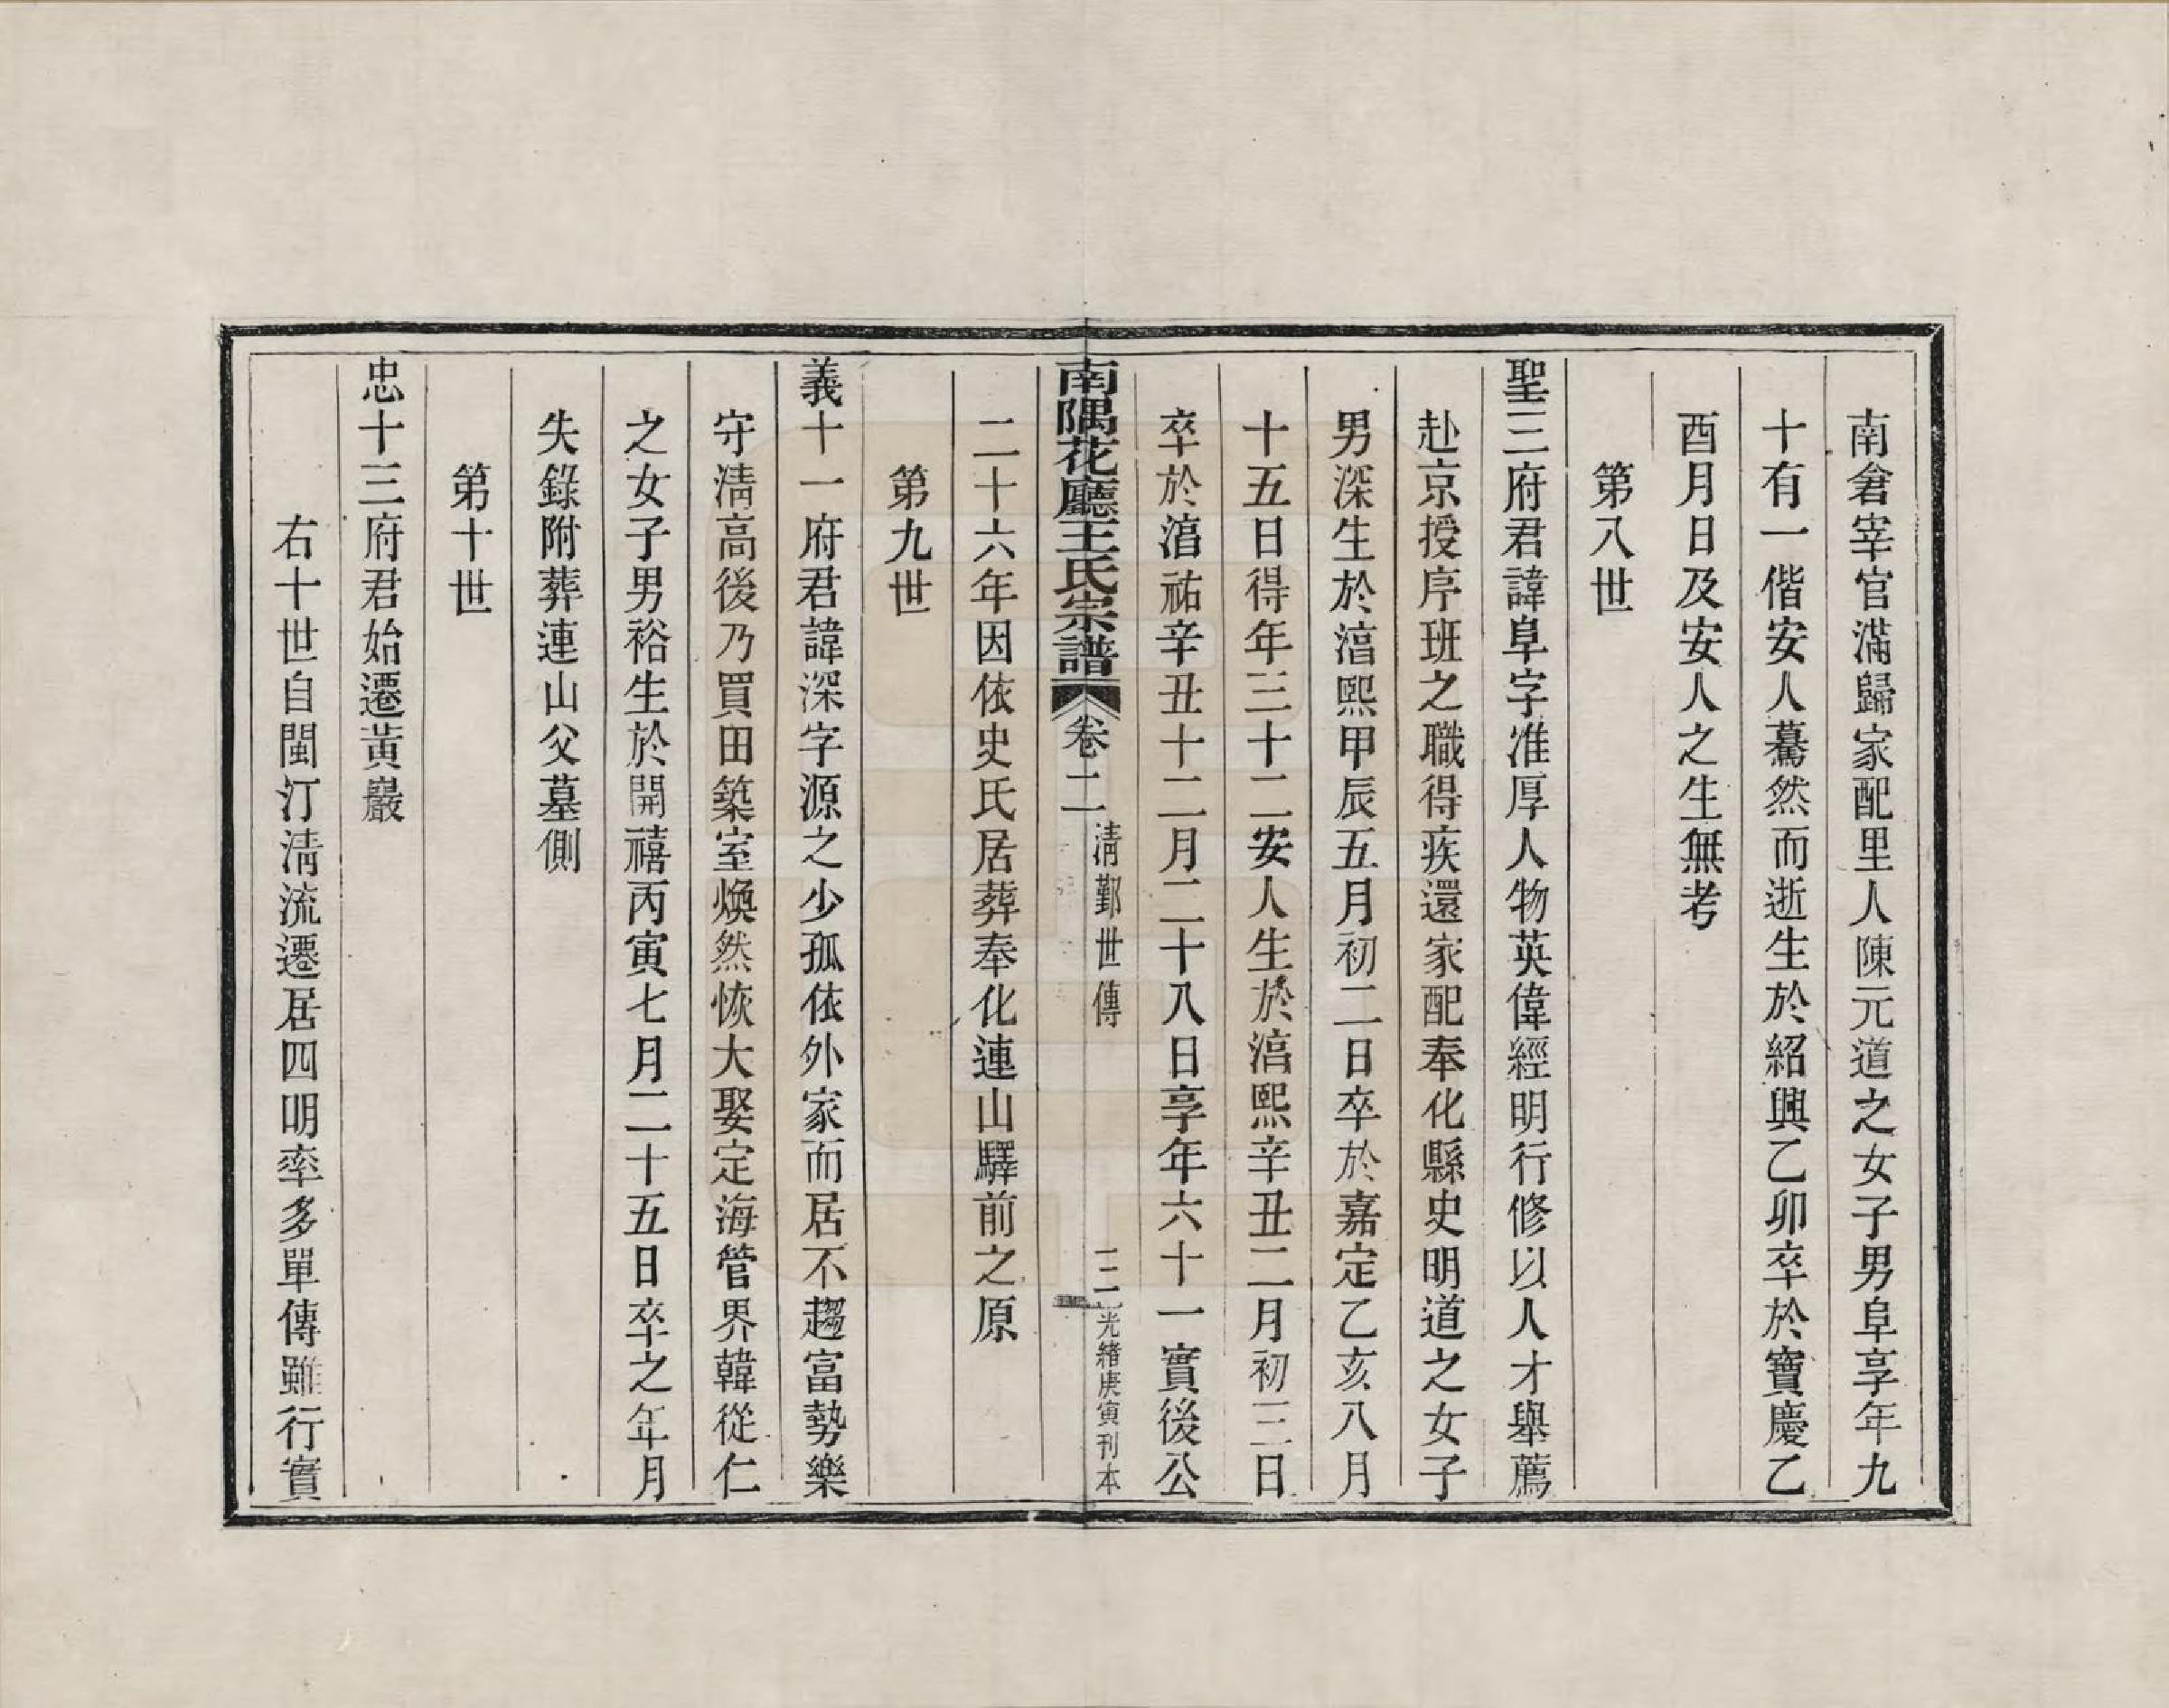 南倉宰官滿歸家配里人陳元道之女子男阜享年九
十有一偕安人驀然而逝生於紹興乙卯卒於寶慶乙
酉月日及安人之生無考
第八世
聖三府君諱阜字准厚人物英偉經明行修以人才舉薦
赴京授序班之職得疾還家配奉化縣史明道之女子
男深生於湻熙甲辰五月初二日卒於嘉定乙亥八月
十五日得年三十二安人生於湻熙辛丑二月初三日
卒於湻祐辛丑十二月二十八日享年六十一實後公
二十六年因依史氏居葬奉化連山驛前之原
南隅花廳王氏宗譜 卷二 清鄞世傳 三 光緒庚寅刊本
第九世
義十一府君諱深字源之少孤依外家而居不趨富勢樂
守清高後乃買田築室煥然恢大娶定海管界韓從仁
之女子男裕生於開禧丙寅七月二十五日卒之年月
失錄附葬連山父墓側
第十世
忠十三府君始遷黃巖
右十世自閩汀清流遷居四明率多單傳雖行實